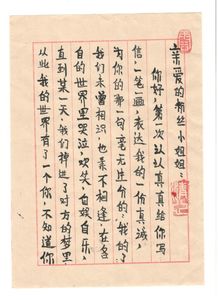 亲爱的粉丝小姐姐：
你好，第一次认认真真给你写
信，一笔一画表达我的一份真诚。
为你的那一句毫无过分的：我的了
我们未曾相识，也素不相逢，在各
自的世界里哭泣，欢笑，自娱自乐，
直到某一天，我们掉进了对方的梦里
从此我的世界有了一个你，不知道你